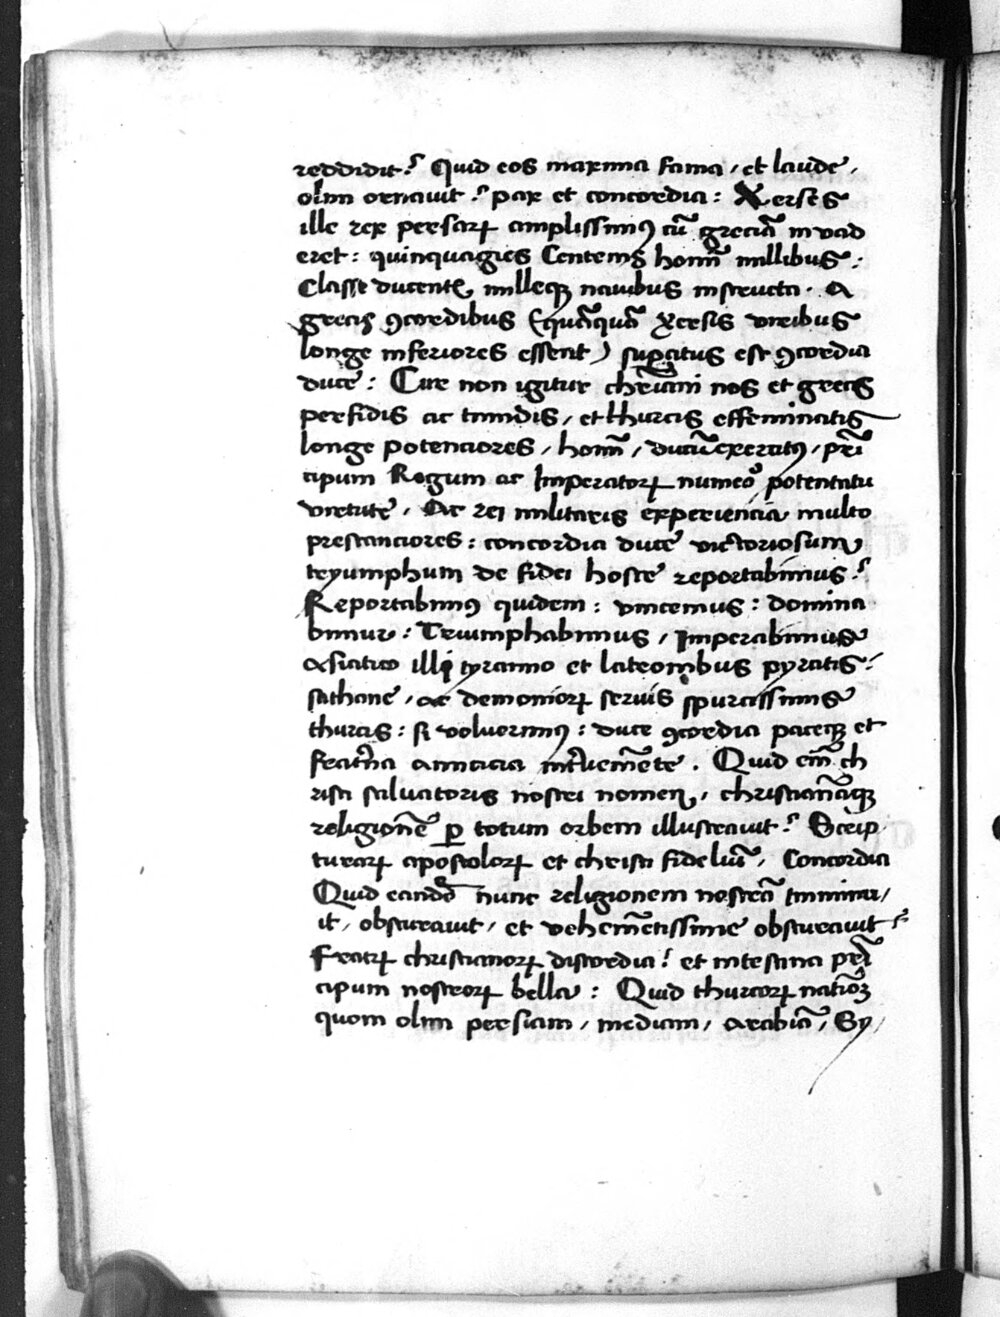 reddidit? Quid eos maxima fama, et laude,
olim ornauit? pax et concordia: Xerses
ille rex persarꝝ amplissimꝰ cū greciā inuad
eret: quinquagies Centenis hoīm millibus:
Classe ducentis milleqꝫ nauibus instructa. A
grecis ꝯcordibus (quāquā xersis viribus
longe inferiores essent) suꝑatus est ꝯcordia
duce: Cur non igitur chrīani nos et grecis
perfidis ac timidis, et thurcis effeminatis
longe potenciores, hoīm, ducū exercitꝰ, prī
cipum Regum ac Imperatorꝝ numeͦo potentatu
virtute, Ac rei militaris experiencia multo
prestanciores: concordia duce victoriosum
tryumphum de fidei hoste reportabimus?
Reportabimꝰ quidem: vincemus: domina
bimur: Triumphabimus, Imperabimus
asiatico illi tyranno et latronibus pyratis?
sathane, ac demoniorꝝ seruis spurcissimis
thurcis: si voluerimꝰ: duce ꝯcordia paceqꝫ et
frat̄na amicicia int̄ueniēte. Quid eīm ch
risti saluatoris nostri nomen, christianāqꝫ
religionē ꝑ totum orbem illustrauit? Scrip
turarꝝ apostolorꝝ et christi fideliū, Concordia
Quid eandē nunc religionem nostrā tminu
it, obscurauit, et vehemētissime obscurauit?
Fratrꝝ christianorꝝ discordia? et intestina prī
cipum nostrorꝝ bella: Quid thurcorꝝ natiōꝫ
quom olim persiam, mediam, arabiā, Sy